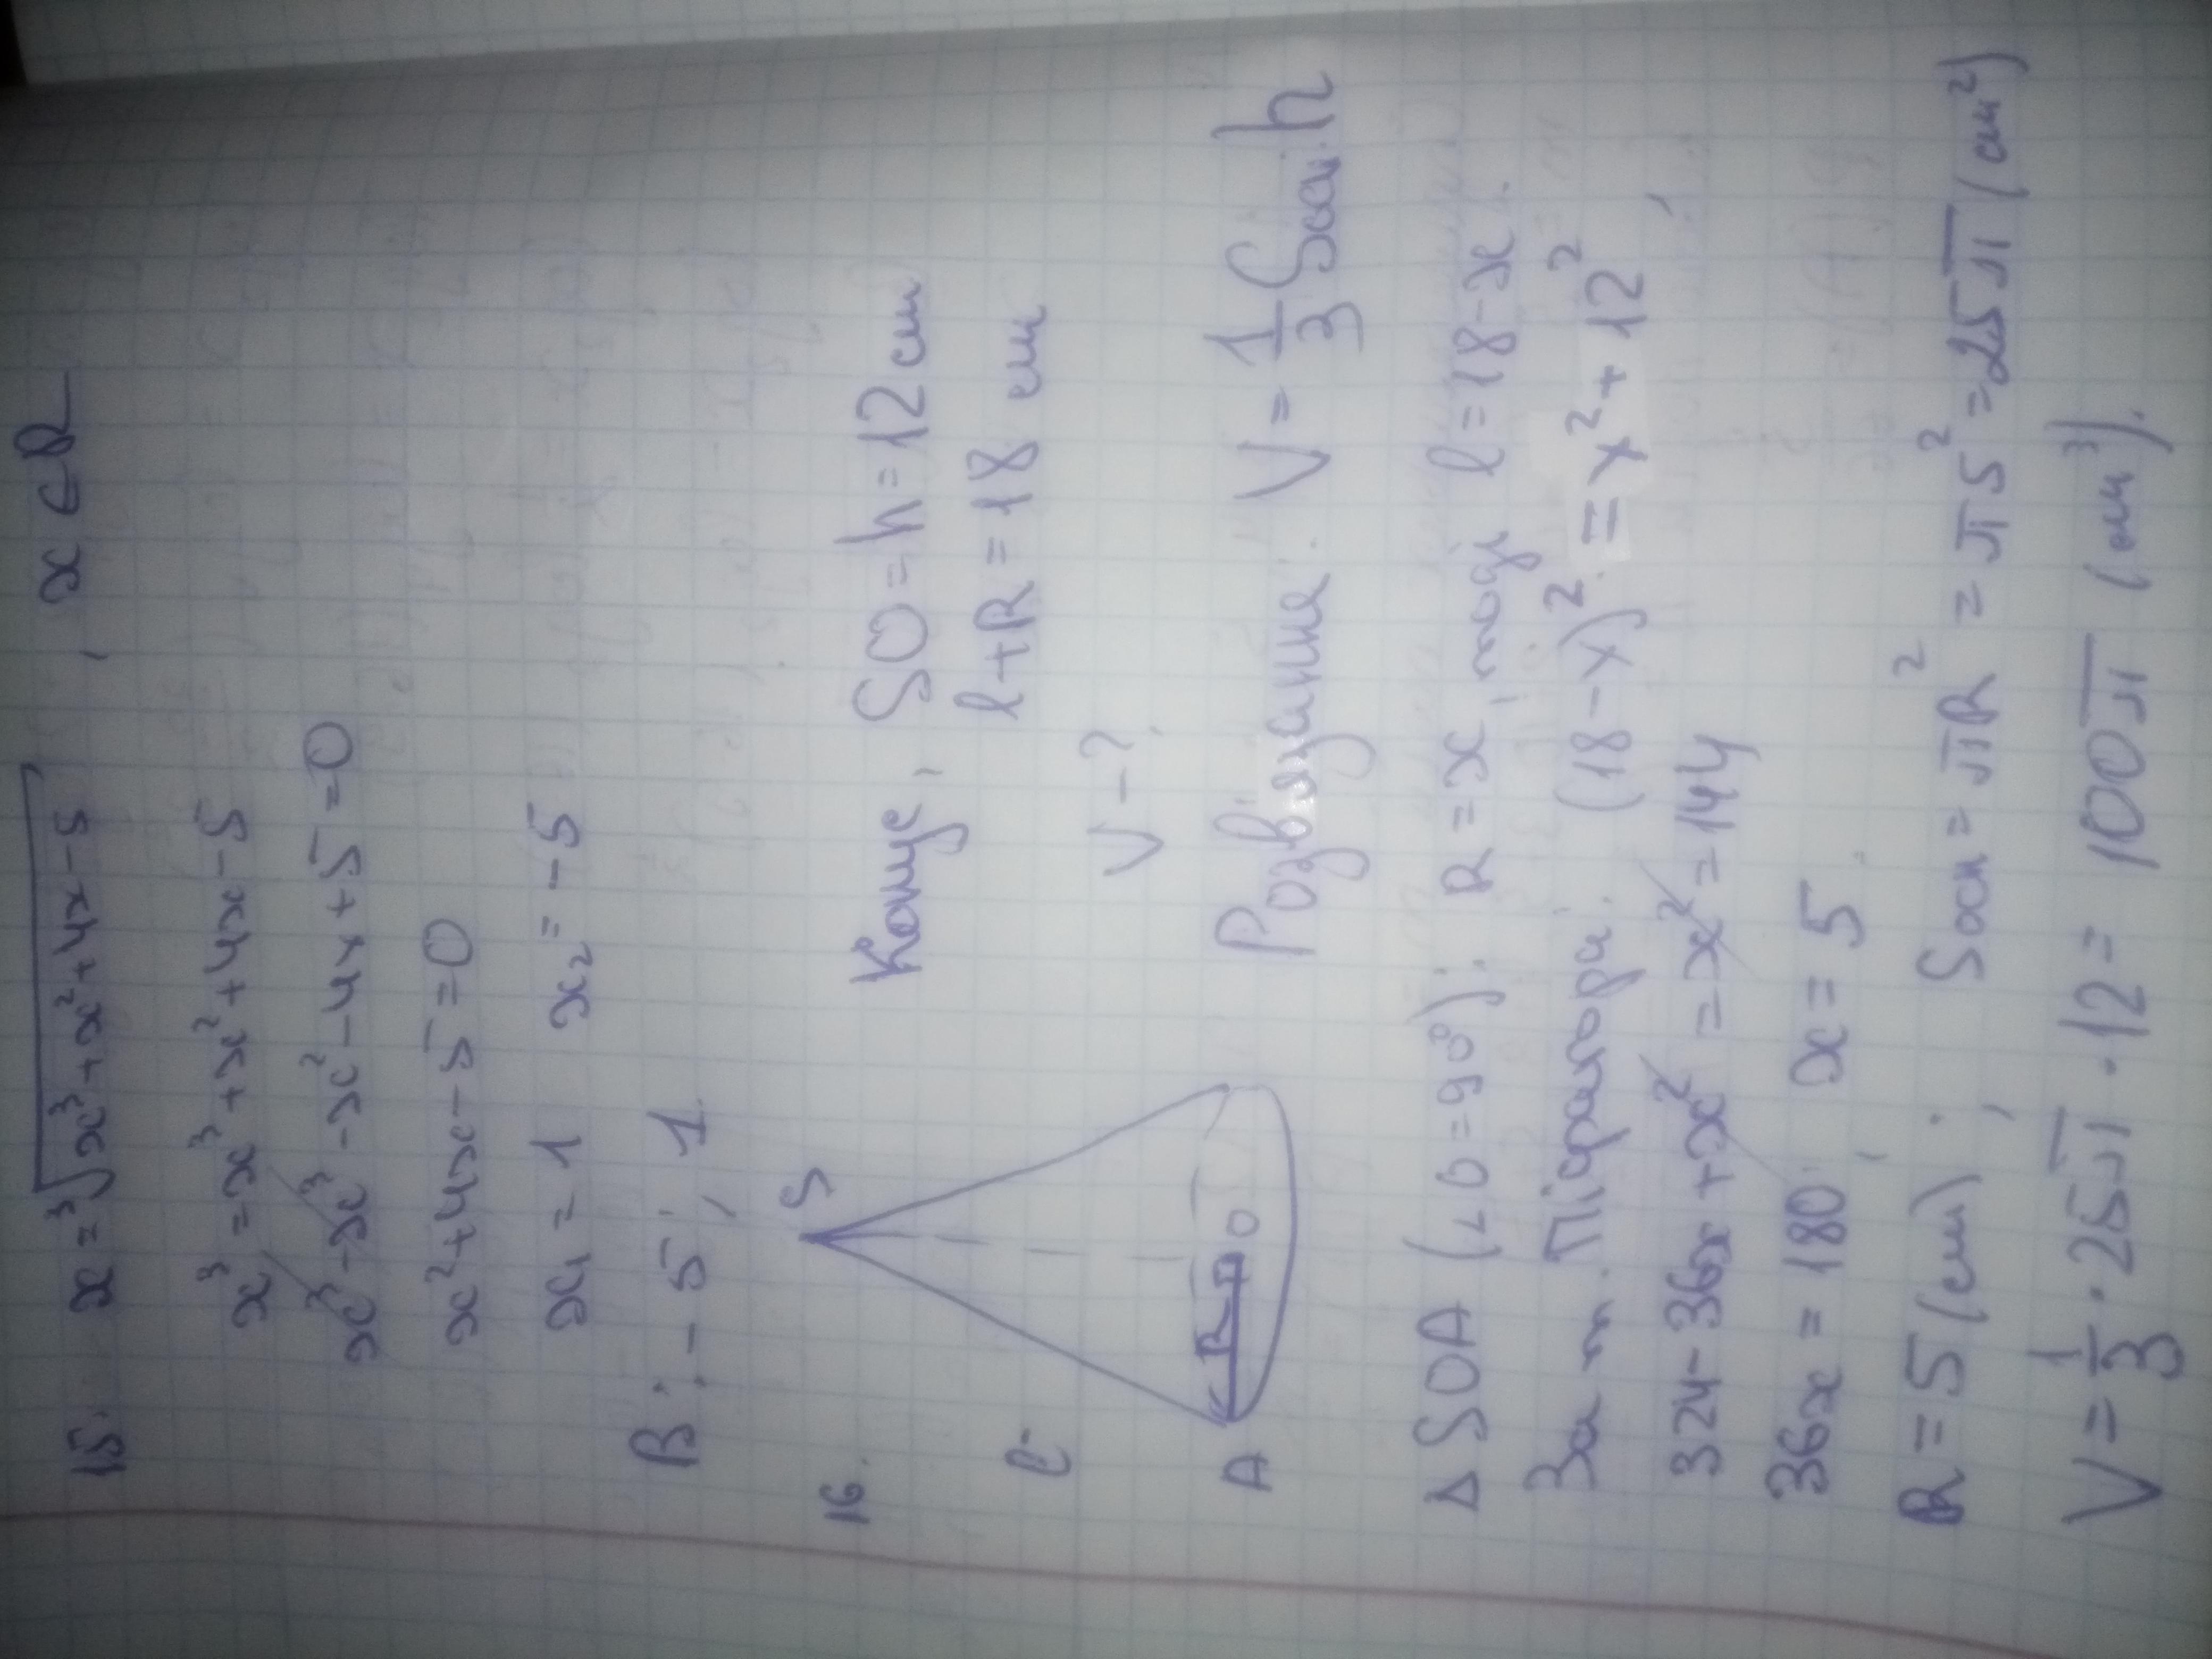 15. x = ³√(x³ + x² + 4x - 5) , x ∈ R
x³ = x³ + x² + 4x - 5
x³ - x³ - x² - 4x + 5 = 0
x² + 4x - 5 = 0
x₁ = 1 x₂ = -5
В: -5; 1
16. S Конус, SO = h = 12 см
l l + R = 18 см
V - ?
A R O Розв'язання: V = 1/3 Sосн. h
Δ SOA (∠O = 90°): R = x, тоді l = 18 - x.
За т. Піфагора: (18 - x)² = x² + 12²
324 - 36x + x² = x² = 144
36x = 180; x = 5
R = 5 (см); Sосн = πR² = π5² = 25π (см²)
V = 1/3 · 25π · 12 = 100π (см³).